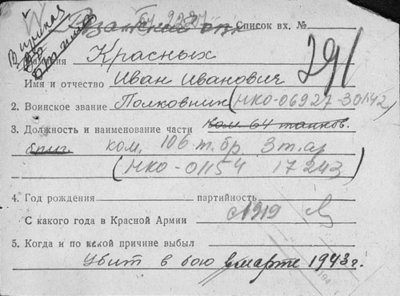 Список вх. №
Фамилия Красных
291
Имя и отчество Иван Иванович
2. Воинское звание Полковник (НКО-06927-30142)
3. Должность и наименование части Ком 64 танков.
бриг. ком. 106 т. бр 3 т. а
(НКО-01154 17243)
4. Год рождения партийность
С какого года в Красной Армии с 1919
5. Когда и по какой причине выбыл
Убит в бою в марте 1943 г.